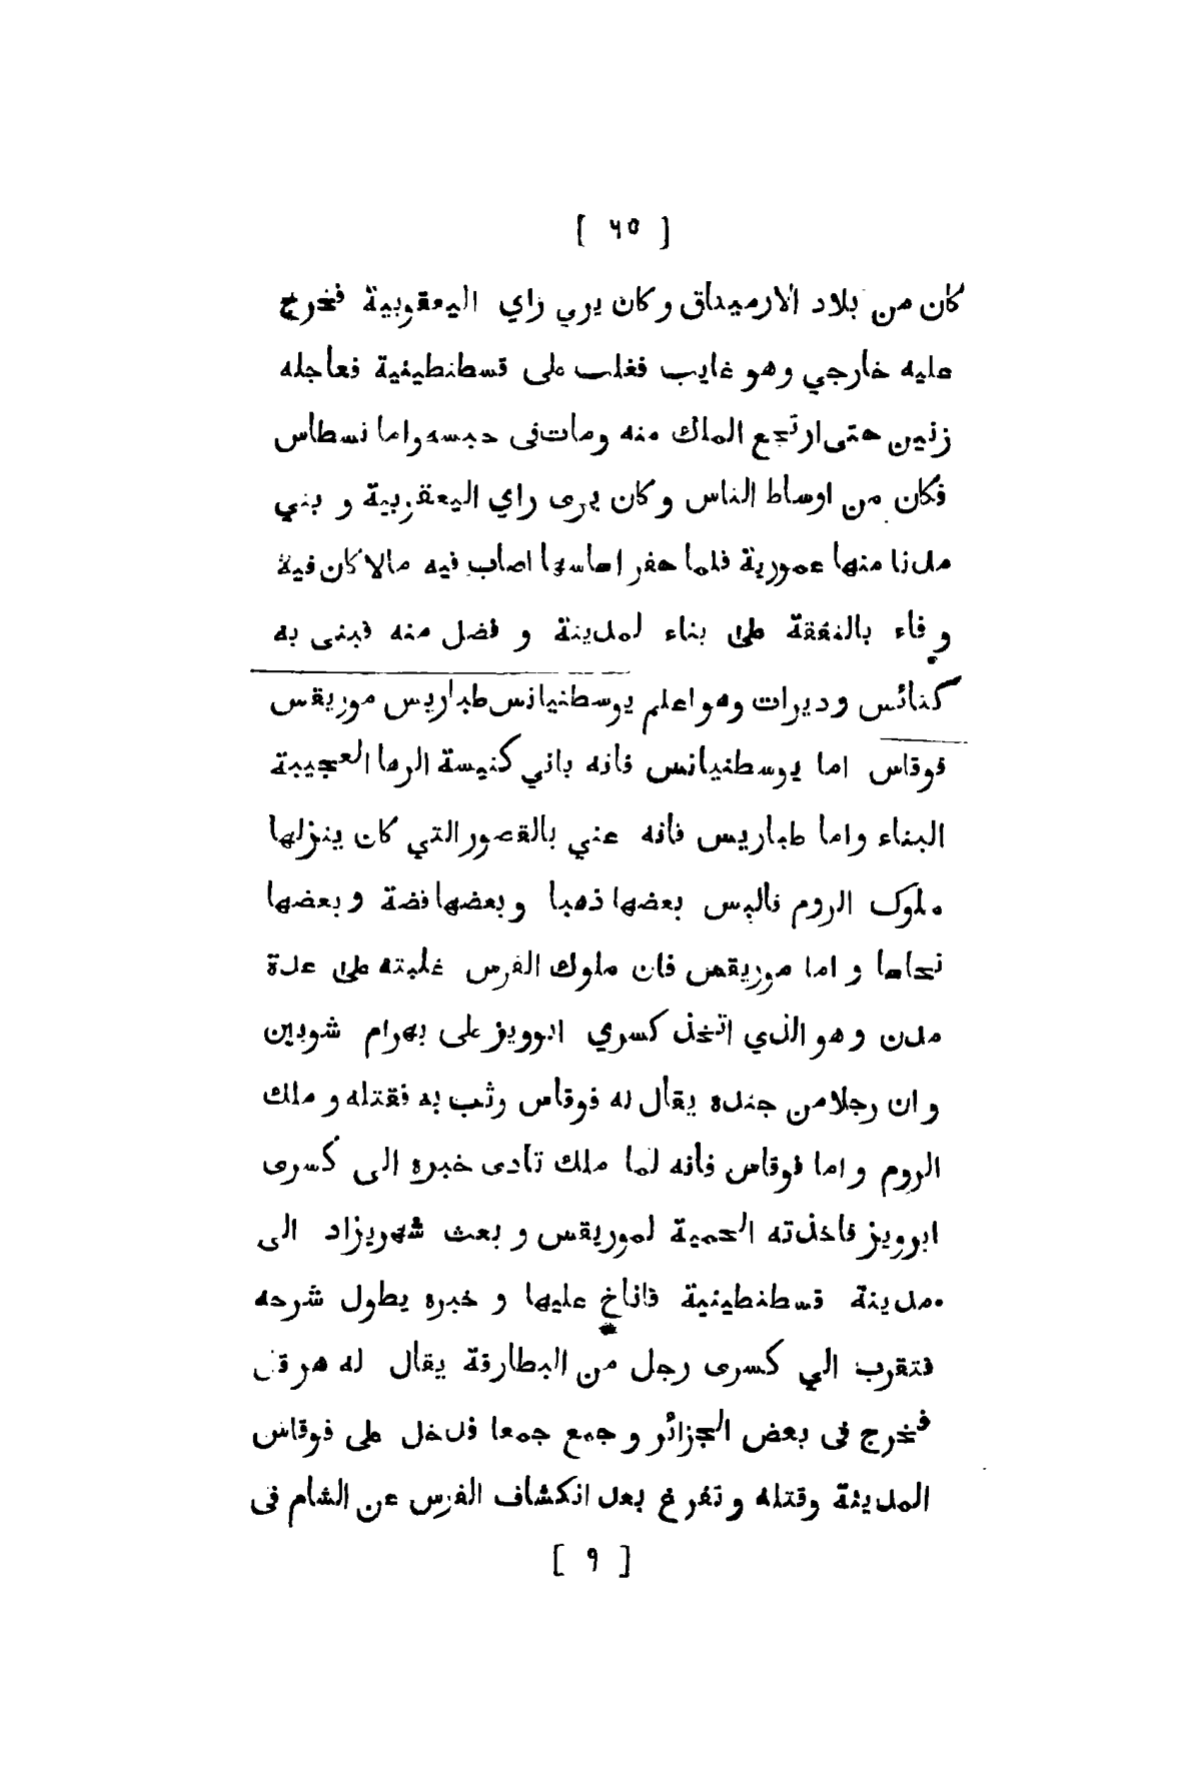 [ ٦٥ ]
كان من بلاد الارميناق وكان يري راي اليعقوبية فخرج
عليه خارجي وهو غايب فغلب على قسطنطينية فعاجله
زنين حتى ارتجع الملك منه ومات فى حبسه واما نسطاس
فكان من اوساط الناس وكان يرى راي اليعقوبية و بني
مدنا منها عمورية فلما حفر اساسها اصاب فيه مالا كان فيه
و فاء بالنفقة على بناء لمدينة و فضل منه فبنى به
كنائس وديرات وهو اعلم يوسطنيانس طباريس موريقس
فوقاس اما يوسطنيانس فانه باني كنيسة الرها العجيبة
البناء واما طباريس فانه عني بالقصور التي كان ينزلها
ملوك الروم فالبس بعضها ذهبا وبعضها فضة وبعضها
نحاسا و اما موريقس فان ملوك الفرس غلبته على عدة
مدن وهو الذي اتخذ كسري ابوويز على بهرام شوبين
و ان رجلا من جنده يقال له فوقاس وثب به فقتله و ملك
الروم و اما فوقاس فانه لما ملك تادى خبره الى كسرى
ابرويز فاخذته الحمية لموريقس و بعث شهريزاد الى
مدينة قسطنطينية فاناخ عليها و خبره يطول شرحه
فتقرب الي كسرى رجل من البطارقة يقال له هرقل
فخرج فى بعض الجزائر و جمع جمعا فدخل على فوقاس
المدينة وقتله و تفرغ بعد انكشاف الفرس عن الشام فى
[ ٩ ]